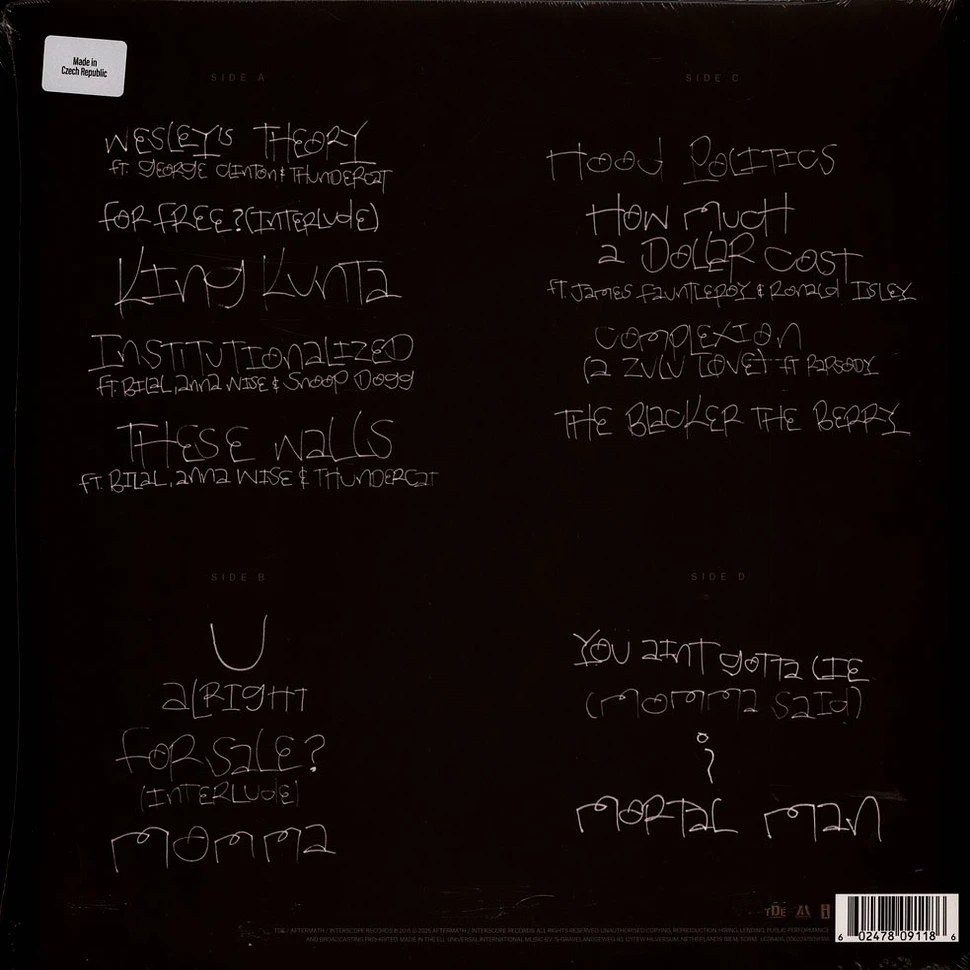 Made in
Czech Republic
SIDE A
WESLEY'S THEORY
ft. GEORGE CLINTON & THUNDERCAT
FOR FREE? (INTERLUDE)
KING KUNTA
INSTITUTIONALIZED
ft. BILAL, ANNA WISE & SNOOP DOGG
THESE WALLS
ft. BILAL, ANNA WISE & THUNDERCAT
SIDE B
U
ALRIGHT
FOR SALE?
(INTERLUDE)
MOMMA
SIDE C
HOOD POLITICS
HOW MUCH
A DOLLAR COST
ft. JAMES FAUNTLEROY & RONALD ISLEY
COMPLEXION
(A ZULU LOVE) ft RAPSODY
THE BLACKER THE BERRY
SIDE D
YOU AINT GOTTA LIE
(MOMMA SAID)
i
MORTAL MAN
TDE
TDE / AFTERMATH / INTERSCOPE RECORDS ALL RIGHTS RESERVED. UNAUTHORISED COPYING, REPRODUCTION, HIRING, LENDING, PUBLIC PERFORMANCE
AND BROADCASTING PROHIBITED. MADE IN THE E.U. UNIVERSAL INTERNATIONAL MUSIC B.V.
6 02478 09118 6